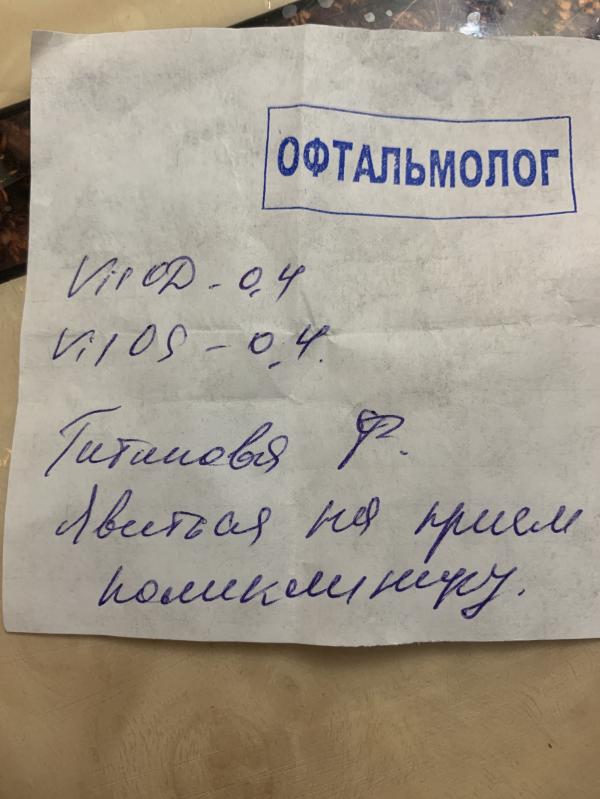 ОФТАЛЬМОЛОГ
Vis OD - 0,4
Vis OS - 0,4.
Титинова Ф.
Явиться на прием
поликлинику.